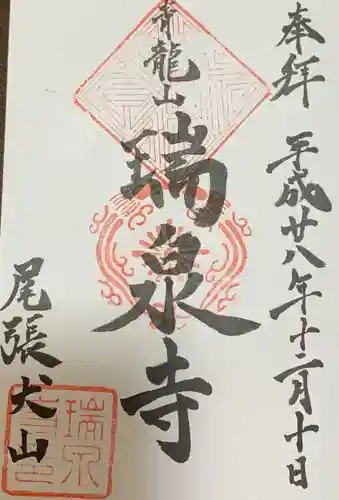 奉拝 平成廿八年十二月十日
青龍山
瑞泉寺
尾張犬山